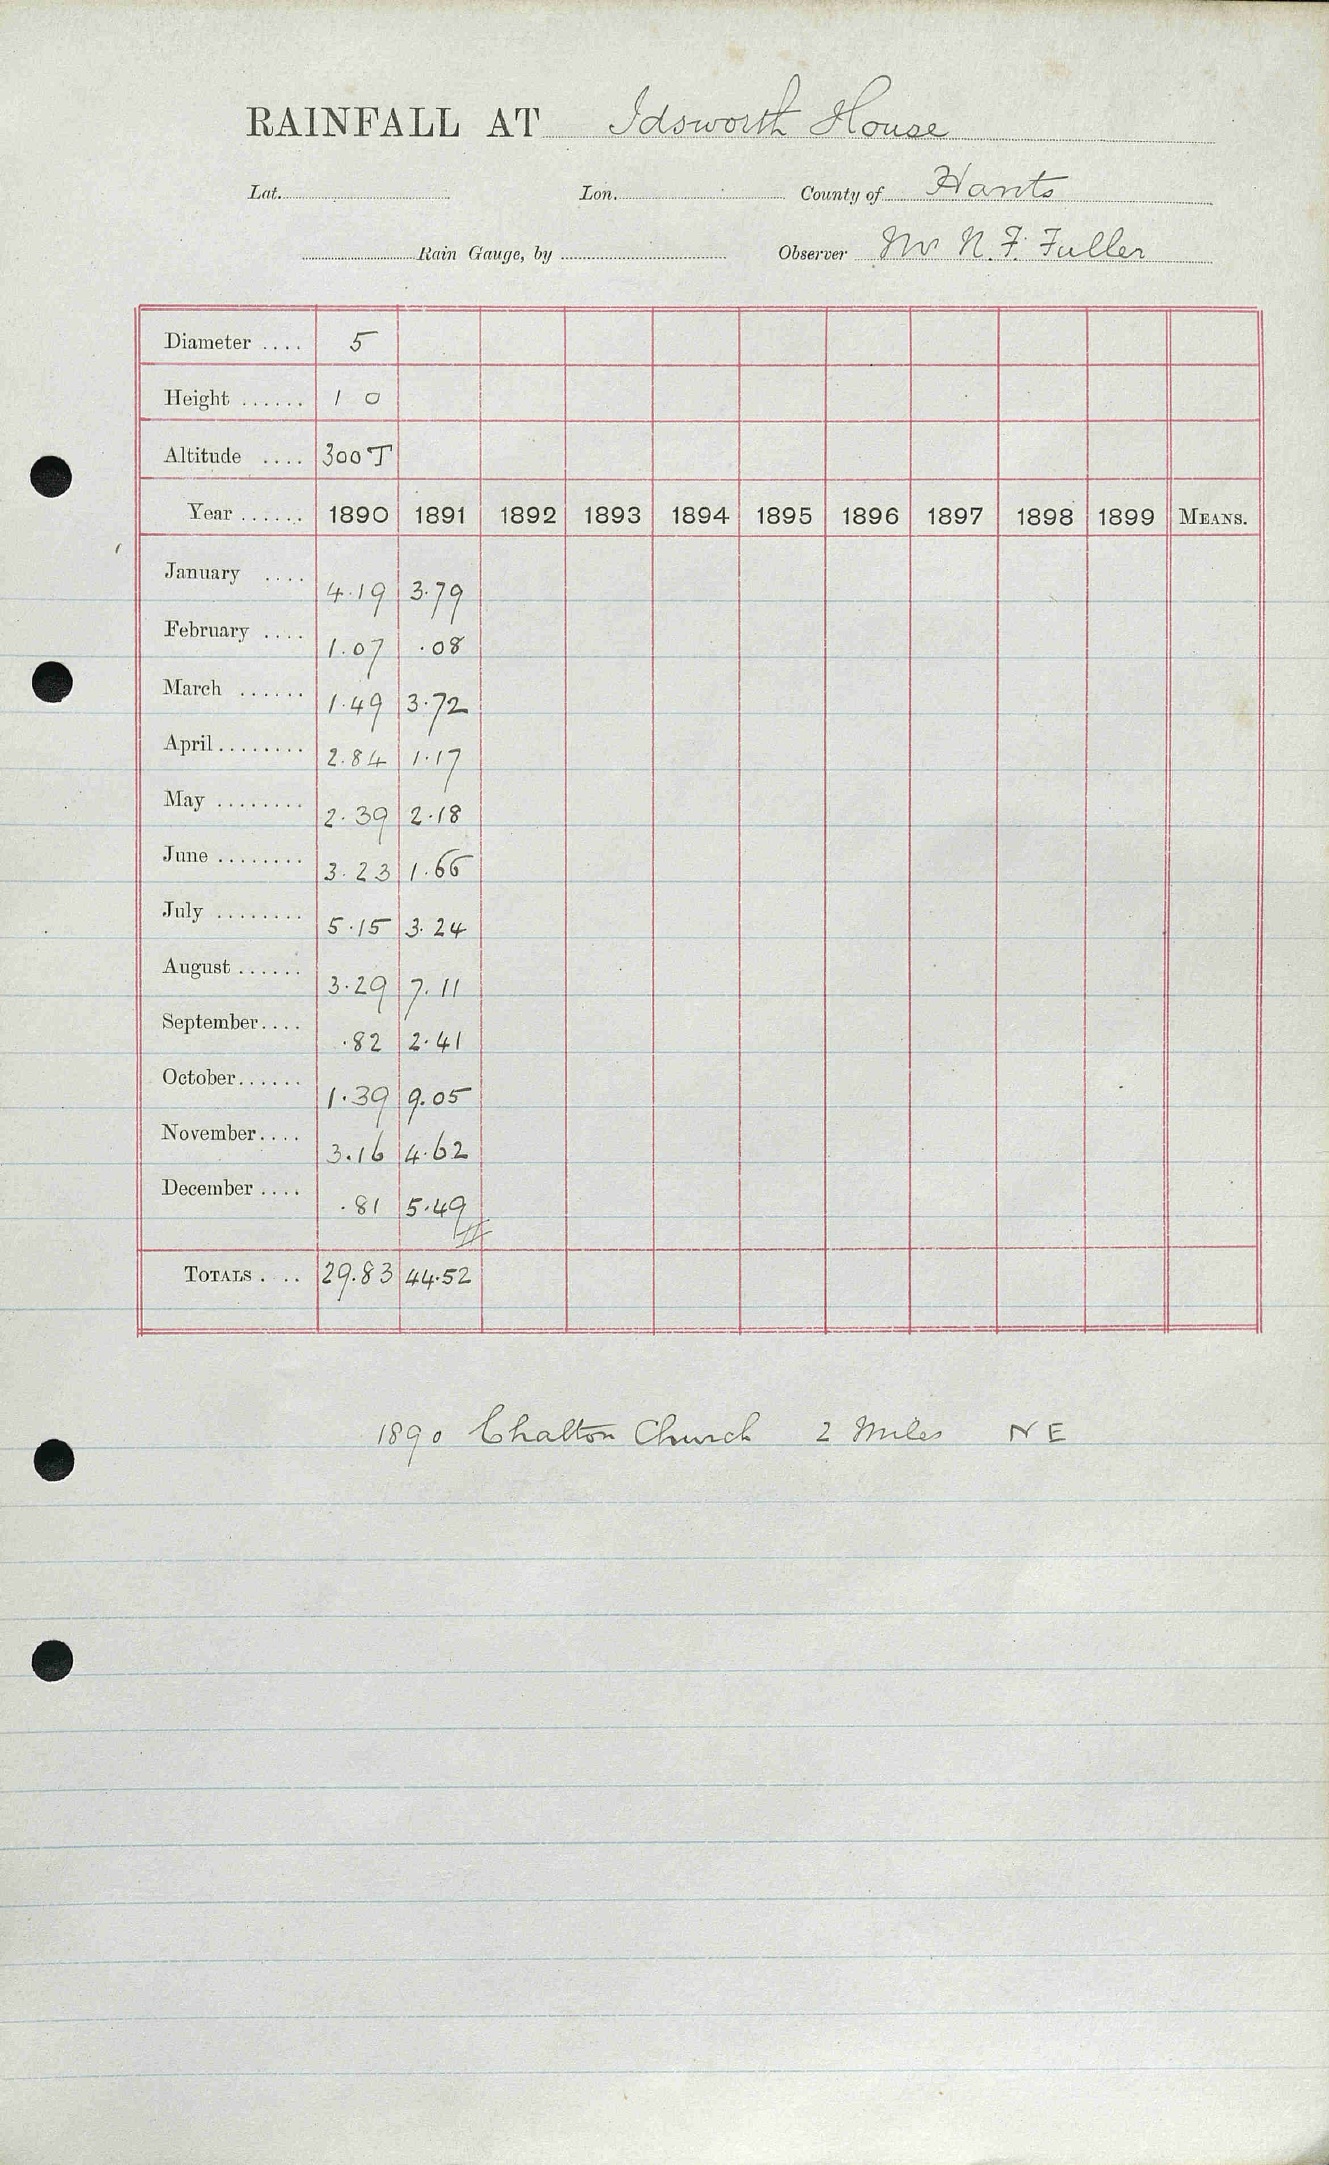 RAINFALL AT Idsworth House
Lat. Lon. County of Hants
Rain Gauge, by Observer Mr N. F. Fuller
Diameter .... 5
Height ...... 1 0
Altitude .... 300 T
Year ...... 1890 1891 1892 1893 1894 1895 1896 1897 1898 1899 MEANS.
January .... 4.19 3.79
February .... 1.07 .08
March ...... 1.49 3.72
April ........ 2.84 1.17
May ........ 2.39 2.18
June ........ 3.23 1.66
July ........ 5.15 3.24
August ...... 3.29 7.11
September.... .82 2.41
October...... 1.39 9.05
November.... 3.16 4.62
December .... .81 5.49
TOTALS . .. 29.83 44.52
1890 Chalton Church 2 Miles NE